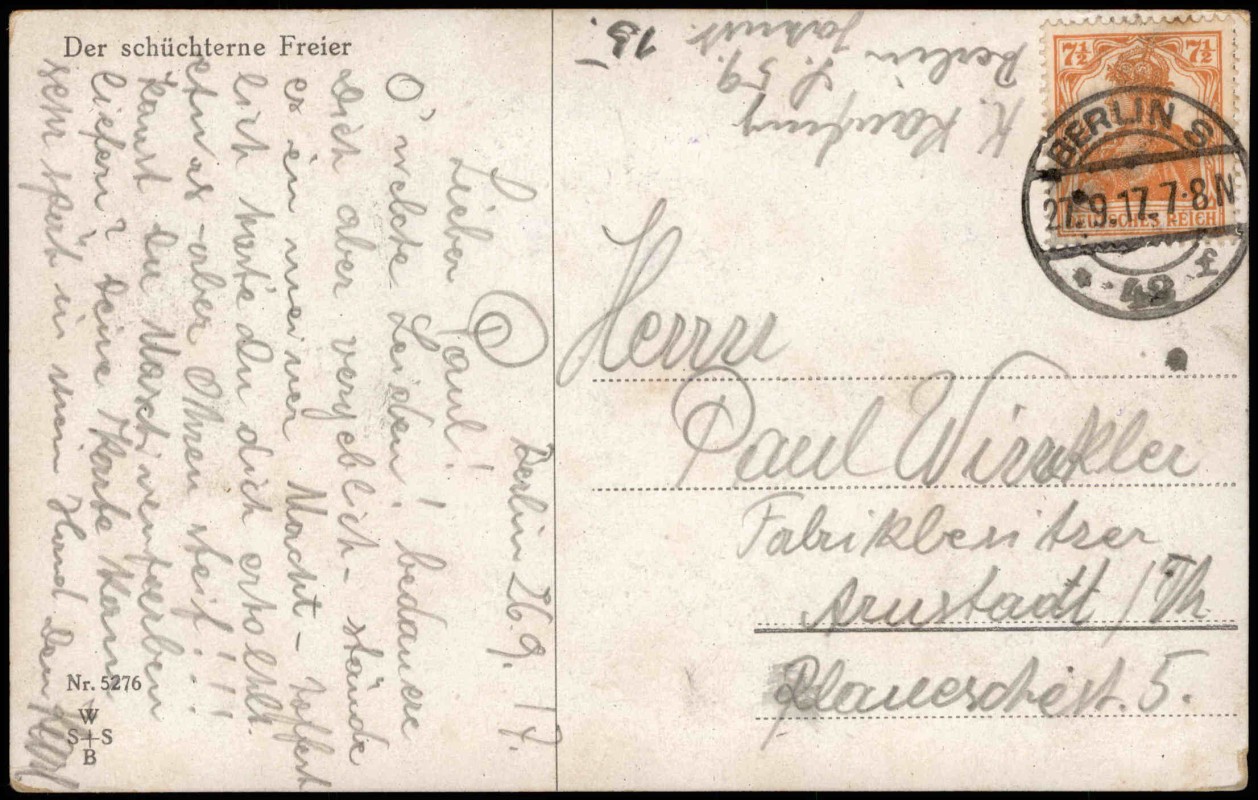 Der schüchterne Freier
Berlin 26.9.17.
Lieber Paul!
O welche Leiden! bedauere
Dich aber vergeblich - stände
es in meiner Macht -
lich hätte du dich erholst.
etwas - aber Ohren steif!!!
kannst du Maschinenfarben
liefern? Deine Karte kam
sehr spät in mein Hand Dein
Nr. 5276
W
S+S
B
K.
Berlin S. 59.
15.
7½ 7½
DEUTSCHES REICH
BERLIN S
27.9.17. 7-8 N
* 42 f
Herrn
Paul Winkler
Fabrikbesitzer
Arnstadt / Th.
Plauschest. 5.